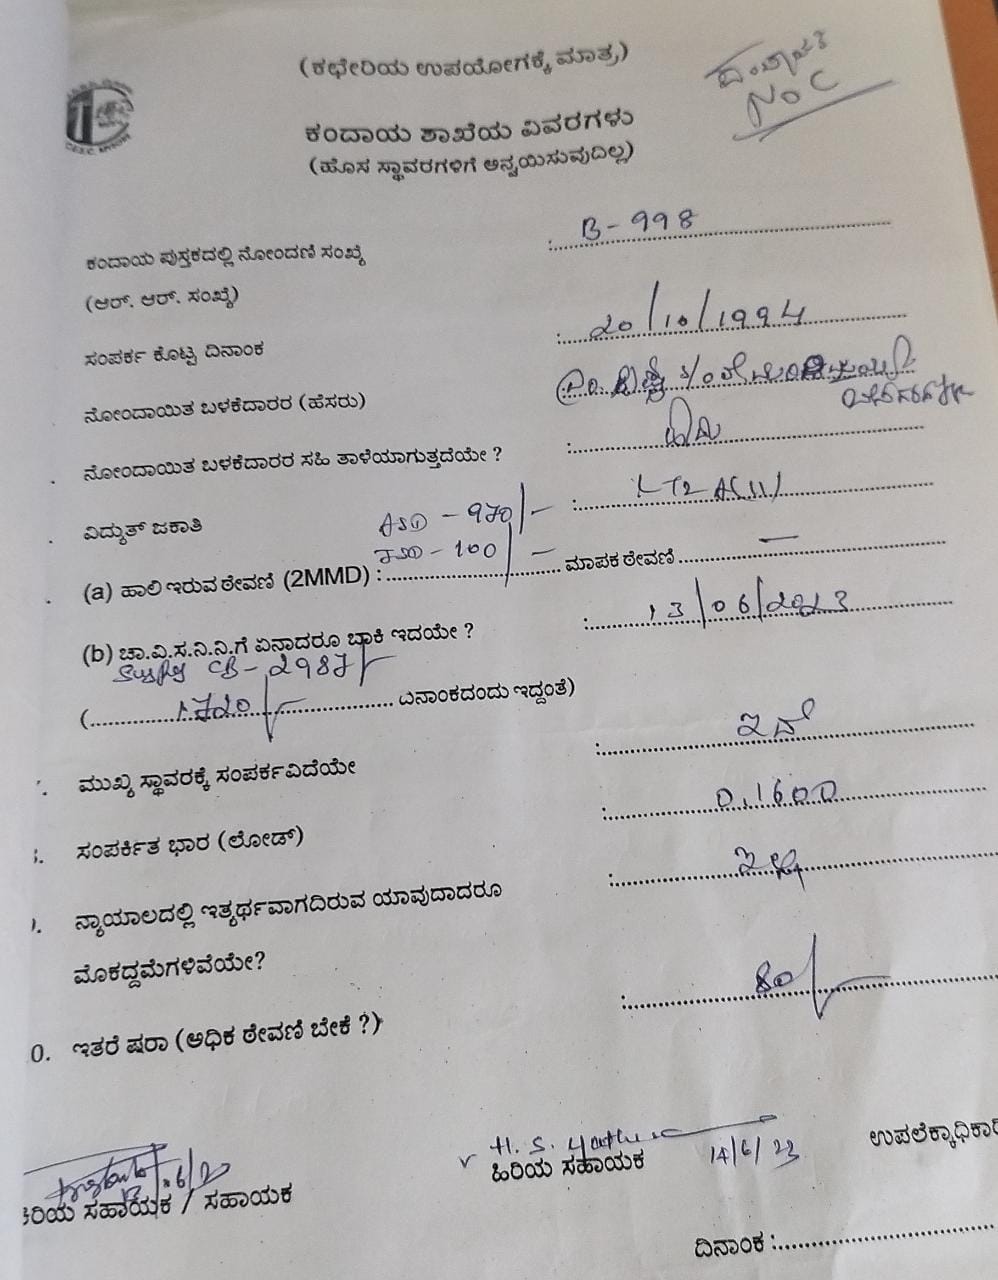 (ಕಛೇರಿಯ ಉಪಯೋಗಕ್ಕೆ ಮಾತ್ರ)
NOC
ಕಂದಾಯ ಶಾಖೆಯ ವಿವರಗಳು
(ಹೊಸ ಸ್ಥಾವರಗಳಿಗೆ ಅನ್ವಯಿಸುವುದಿಲ್ಲ)
ಕಂದಾಯ ಪುಸ್ತಕದಲ್ಲಿ ನೋಂದಣಿ ಸಂಖ್ಯೆ : B-998
(ಆರ್. ಆರ್. ಸಂಖ್ಯೆ)
ಸಂಪರ್ಕ ಕೊಟ್ಟ ದಿನಾಂಕ : 20/10/1994
ನೋಂದಾಯಿತ ಬಳಕೆದಾರರ (ಹೆಸರು)
ನೋಂದಾಯಿತ ಬಳಕೆದಾರರ ಸಹಿ ತಾಳೆಯಾಗುತ್ತದೆಯೇ ? :
ವಿದ್ಯುತ್ ಜಕಾತಿ : LT2 A(II)
ASD - 970/-
(a) ಹಾಲಿ ಇರುವ ಠೇವಣಿ (2MMD) : - 100/- ಮಾಪಕ ಠೇವಣಿ —
(b) ಚಾ.ವಿ.ಸ.ನಿ.ನಿ.ಗೆ ಏನಾದರೂ ಬಾಕಿ ಇದಯೇ ? : 13/06/2023
CB - 2987/-
(1720/- ಏನಾಂಕದಂದು ಇದ್ದಂತೆ)
ಮುಖ್ಯ ಸ್ಥಾವರಕ್ಕೆ ಸಂಪರ್ಕವಿದೆಯೇ : ಇದೆ
ಸಂಪರ್ಕಿತ ಭಾರ (ಲೋಡ್) : 0.1600
ನ್ಯಾಯಾಲದಲ್ಲಿ ಇತ್ಯರ್ಥವಾಗದಿರುವ ಯಾವುದಾದರೂ : ಇಲ್ಲ
ಮೊಕದ್ದಮೆಗಳಿವೆಯೇ?
0. ಇತರೆ ಷರಾ (ಅಧಿಕ ಠೇವಣಿ ಬೇಕೆ ?) : 80/-
H. S. 14/6/23 ಉಪಲೆಕ್ಕಾಧಿಕಾರಿ
ಹಿರಿಯ ಸಹಾಯಕ
ಕಿರಿಯ ಸಹಾಯಕ / ಸಹಾಯಕ
ದಿನಾಂಕ :